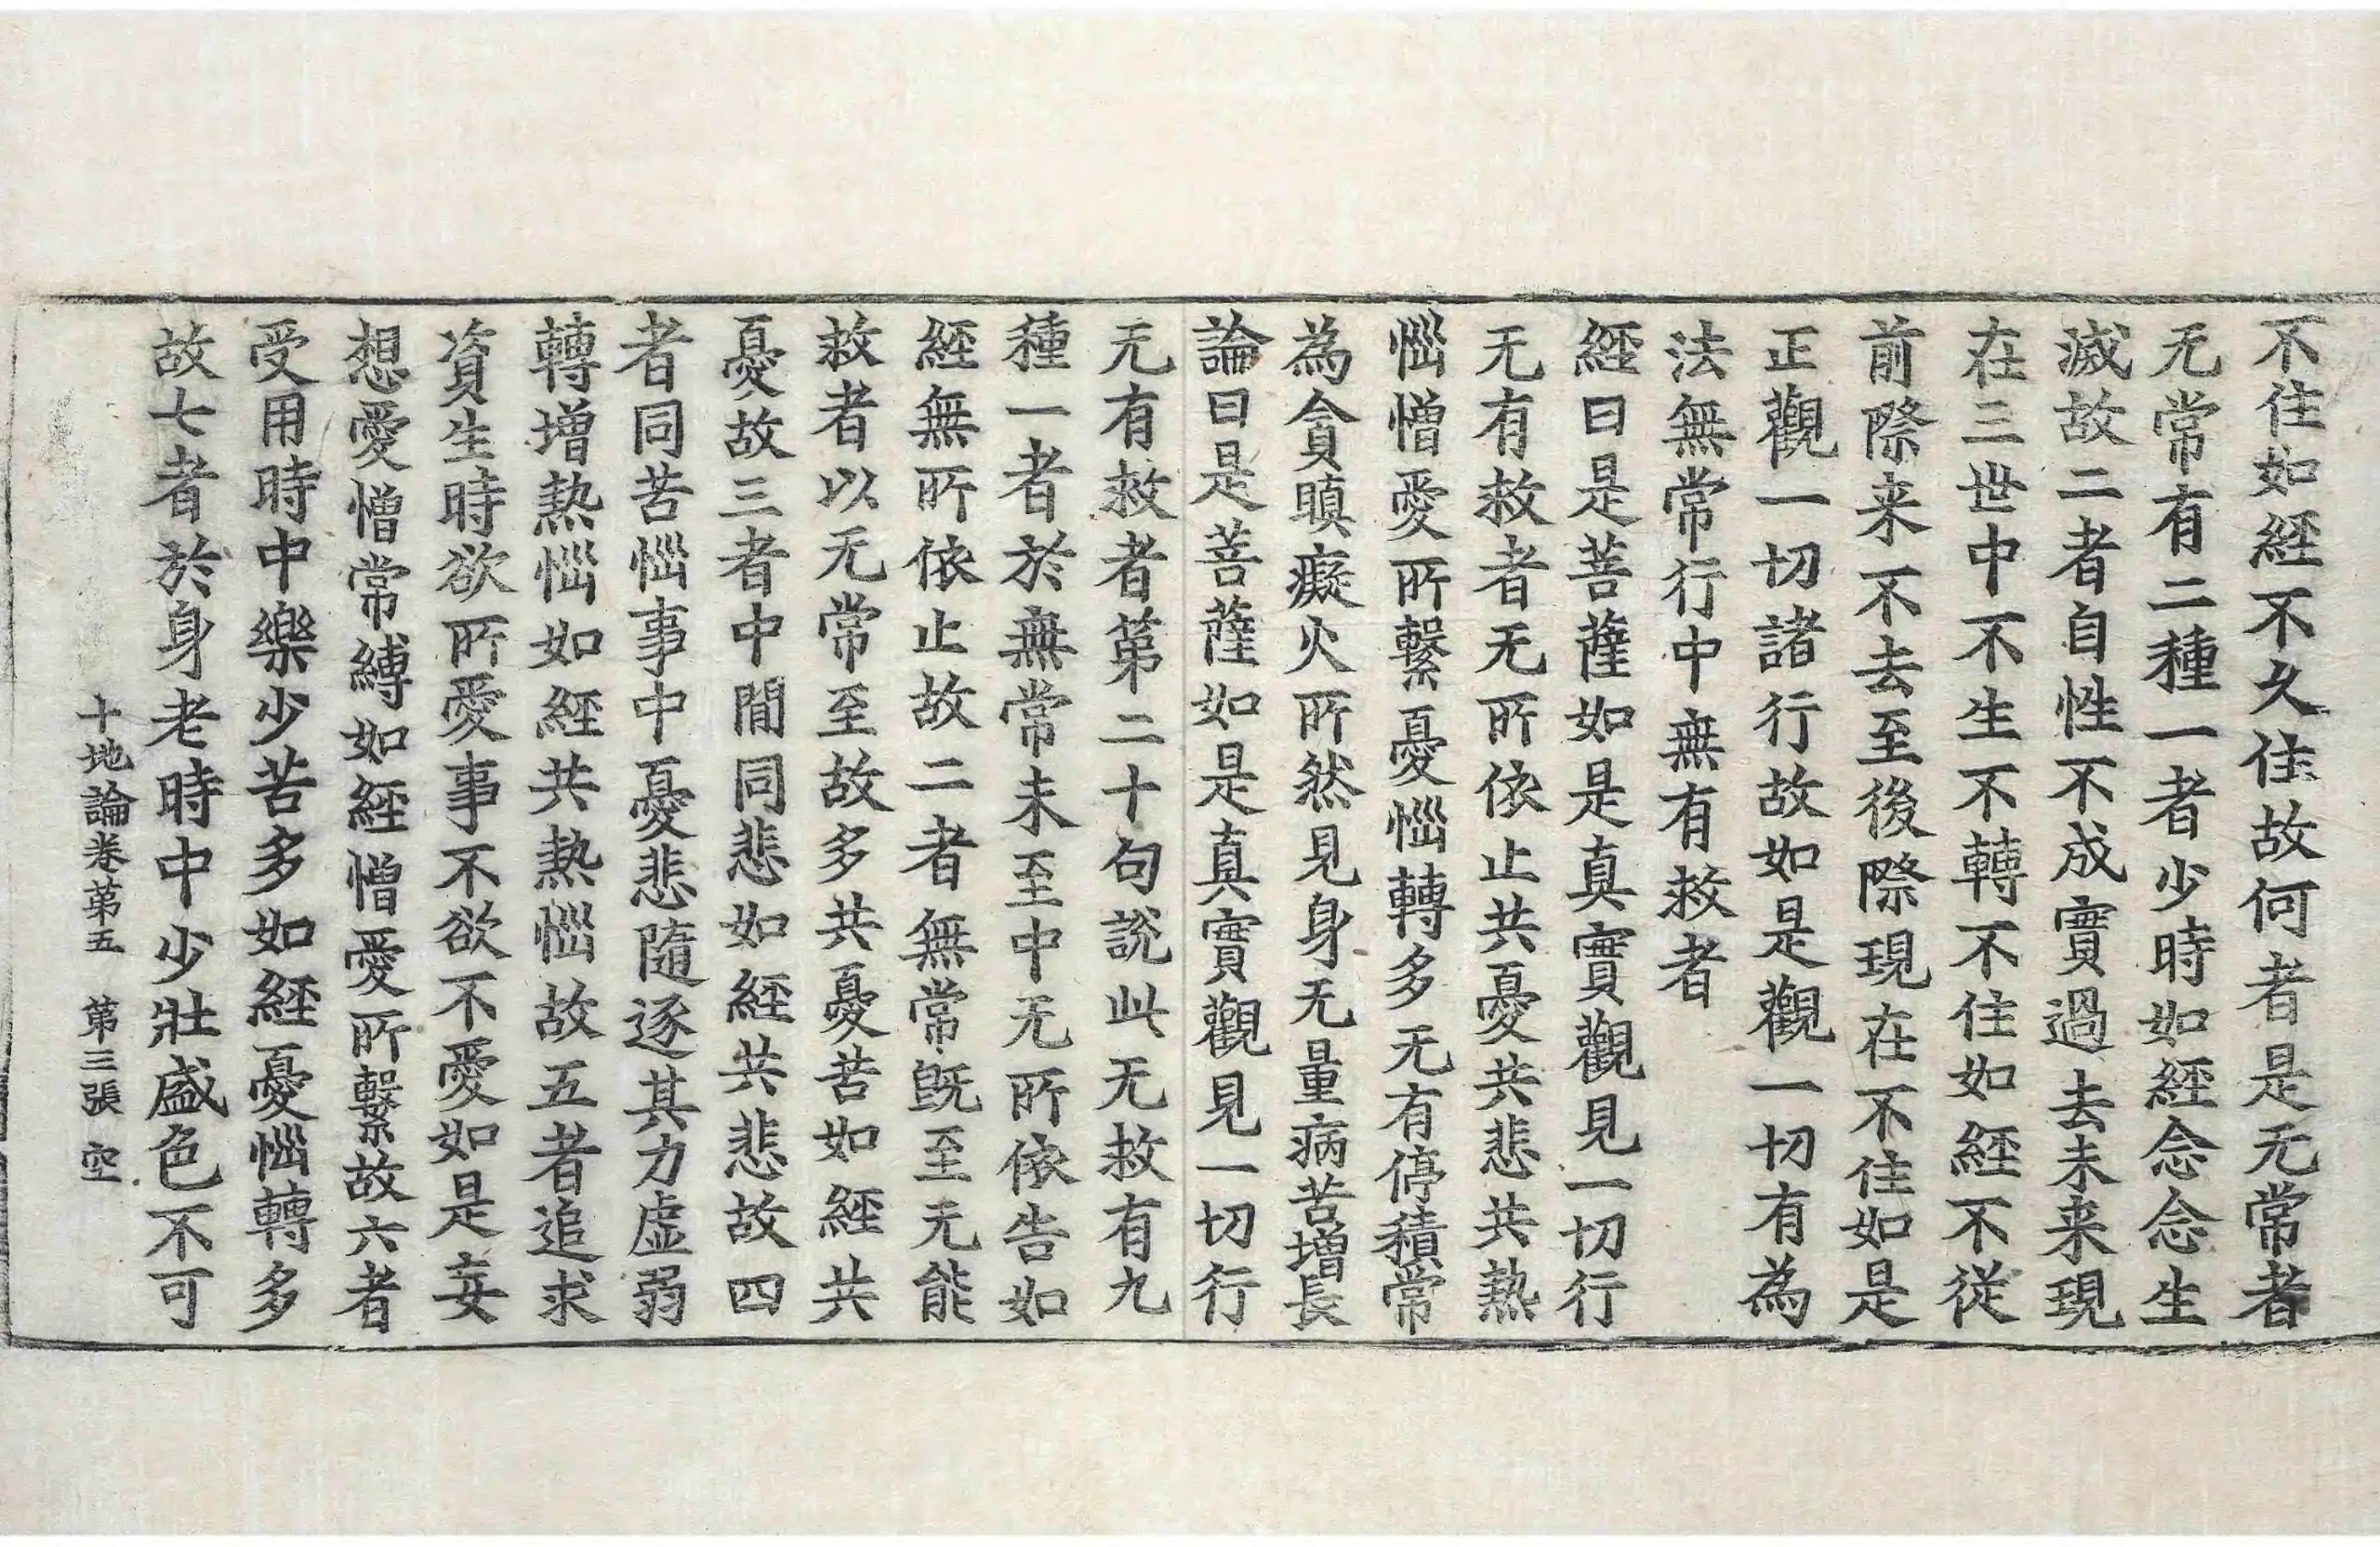 不住如經不久住故何者是无常者
无常有二種一者少時如經念念生
滅故二者自性不成實過去未来現
在三世中不生不轉不住如經不從
前際来不去至後際現在不住如是
正觀一切諸行故如是觀一切有為
法無常行中無有救者
經曰是菩薩如是真實觀見一切行
无有救者无所依止共憂共悲共熱
惱憎愛所繫憂惱轉多无有停積常
為貪瞋癡火所然見身无量病苦增長
論曰是菩薩如是真實觀見一切行
无有救者第二十句說此无救有九
種一者於無常未至中无所依告如
經無所依止故二者無常既至无能
救者以无常至故多共憂苦如經共
憂故三者中間同悲如經共悲故四
者同苦惱事中憂悲隨逐其力虛弱
轉增熱惱如經共熱惱故五者追求
資生時欲所愛事不欲不愛如是妄
想愛憎常縛如經憎愛所繫故六者
受用時中樂少苦多如經憂惱轉多
故七者於身老時中少壯盛色不可
十地論卷第五 第三張 空